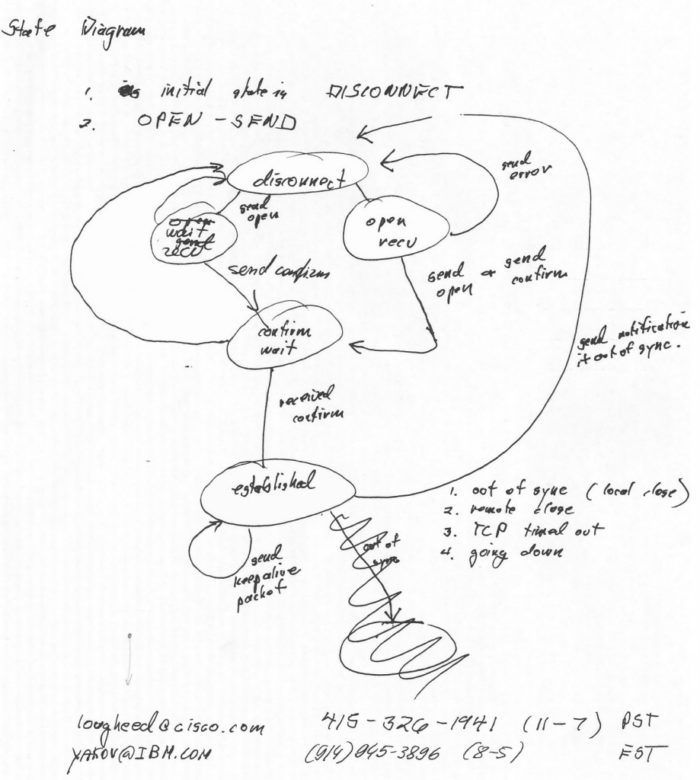 State Diagram
1. initial state is DISCONNECT
2. OPEN - SEND
disconnect
send
error
send
open
open
recv
wait
recv
send confirm
send or send
open confirm
confirm
wait
send notification
if out of sync.
received
confirm
established
1. out of sync (local close)
2. remote close
3. TCP timed out
4. going down
out of
sync
send
keepalive
packet
lougheed@cisco.com 415-326-1941 (11-7) PST
YAKOV@IBM.COM (914) 945-3896 (8-5) EST